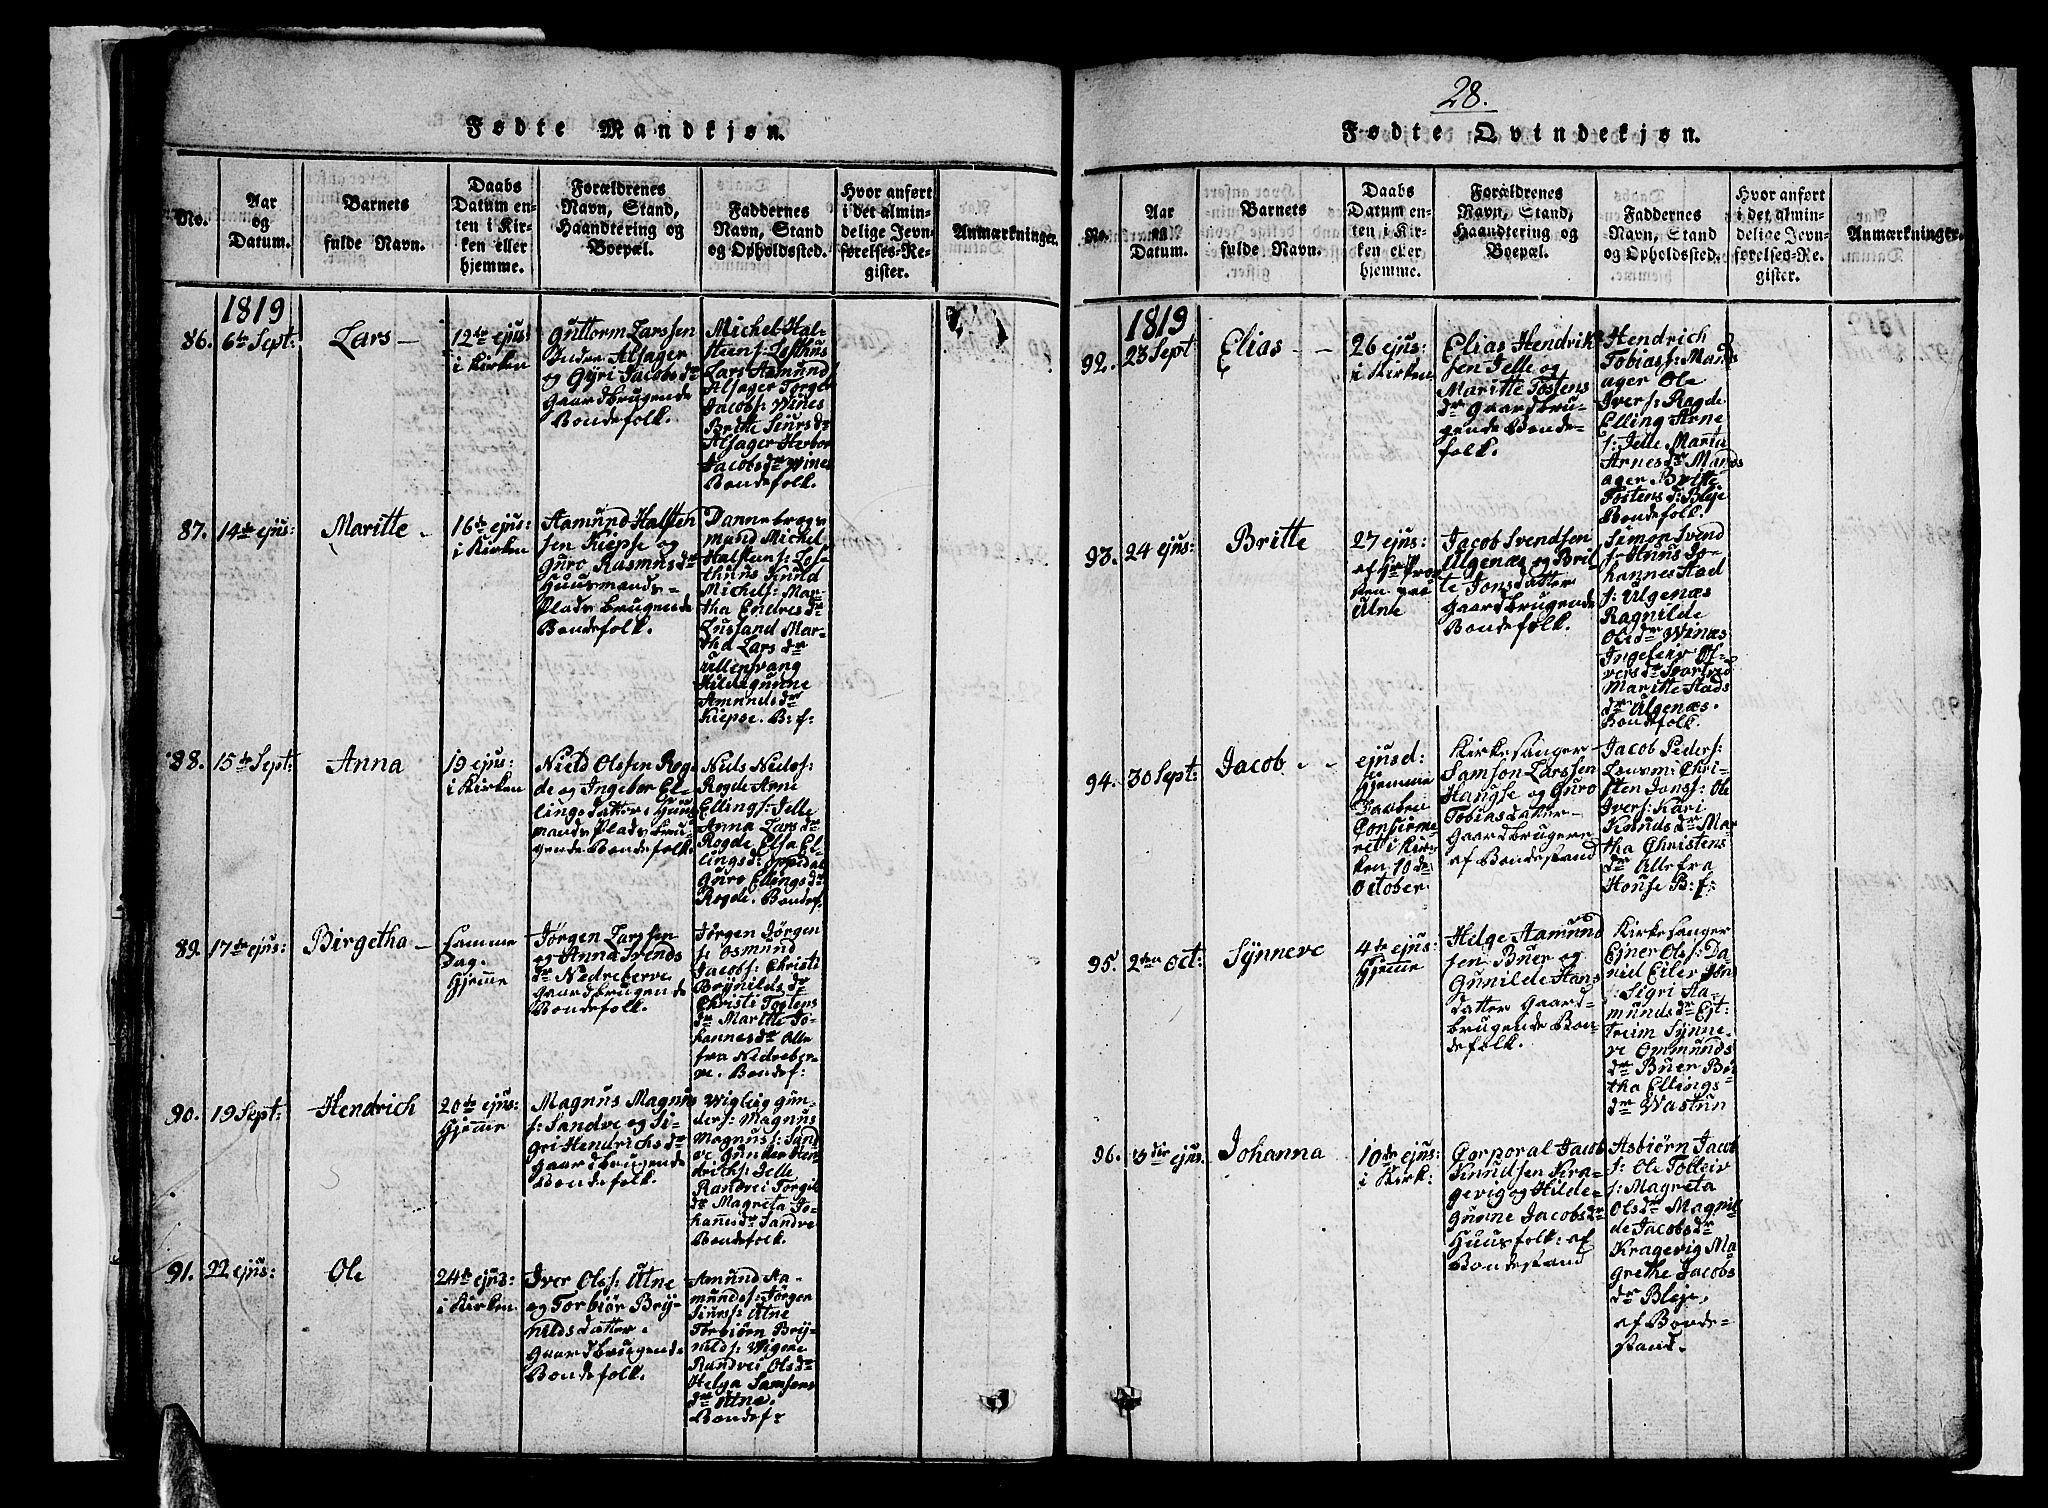 Fødte Mandkjøn.
No.
Aar
og
Datum.
Barnets
fulde Navn.
Daabs
Datum en-
ten i Kir-
ken eller
hjemme.
Forældrenes
Navn, Stand,
Haandtering og
Boepæl.
Faddernes
Navn, Stand
og Opholdssted.
Hvor anført
i det almin-
delige Jevn-
førelses-Re-
gister.
Anmærkninger.
1819
86. 6te Sept:
Lars
12te ejus:
i Kirken
Guttorm Larssen
Alsager
og Gyri Jacobsdr
Gaardbrugende
Bondefolk.
Michel Hal-
steens: Lofthus
Lars Aamund
Alsager Torger
Jacobs: Wines
Britte Siursdr
Alsager Herbor
Jacobsdr Wines
Bondefolk.
87. 14de ejus:
Maritte
16de ejus:
i Kirken
Aamund Halsten
sen Kiepse og
Guro Rasmusdr
Huusmands-
Plads brugende
Bondefolk.
Dannebrogs
mand Michel
Halsteens: Lof-
thuus Knud
Michels: Mar-
tha Endresdr
Lussand Mar-
tha Larsdr
Ullensvang
Hildegunne
Amundsdr
Kiepse. B: f:
88. 15de Sept:
Anna
19 ejus:
i Kirken
Niels Olssen Rog-
de og Ingebor El-
lingsdatter Huus
mands Plads bru-
gende Bondefolk.
Niels Niels:
Rogde Arne
Ellings: Jelle
Anna Larsdr
Rogde Elsa El-
lingsd: Oppedal
Guro Ellingsdr
Rogde. Bondef.
89. 17de ejus:
Birgetha
Samme
Dag.
Hjemme
Jørgen Larssen
og Anna Svends
dr Nedreberve
Gaardbrugende
Bondefolk.
Jørgen Jørgen
s: Osmund
Jacobs: Christi
Brynildsdr
Christi Tostens
dr Maritte Jo-
hannesdr Alle
fra Nedreber-
ve. Bondef:
90. 19 Sept:
Hendrich
20de ejus:
Hjemme
Magnus Magnus
s: Sandve og Si-
gri Hendrichsdr
Gaardbrugende
Bondefolk.
Wiglig Gun-
ders: Magnus
Magnus s: Sand
ve Gunder Hen
drichs: Jelle
Randvei Torgils
dr Magreta Jo-
hannesdr Sandve
Bondefolk.
91. 22 ejus:
Ole
24de ejus:
i Kirken
Iver Ols: Utne
og Torbiør Bry-
nildsdatter
Gaardbrugende
Bondefolk.
Amund Aa-
munds: Jørgen
Siurs: Utne
Torbiørn Bry-
nilds: Wigene
Randvei Olsdr
Helga Samsons
dr Utne.
Bondef:
28.
Fødte Qvindekjøn.
No.
Aar
og
Datum.
Barnets
fulde Navn.
Daabs
Datum en-
ten i Kir-
ken eller
hjemme.
Forældrenes
Navn, Stand,
Haandtering og
Boepæl.
Faddernes
Navn, Stand
og Opholdssted.
Hvor anført
i det almin-
delige Jevn-
førelses-Re-
gister.
Anmærkninger.
1819
92. 23 Sept
Elias
26 ejus:
i Kirken
Elias Hendrik
sen Jelle og
Maritte Tostens
dr Gaardbru-
gende Bonde-
folk.
Hendrich
Tobias s: Mands
ager Ole
Ivers: Rogde
Elling Arne
s: Jelle Maritta
Arnesdr Mands
ager Britte
Tostensd: Bleje
Bondefolk.
93. 24 ejus:
Britte
27 ejus:
af Hr Pro-
sten paa
Utne
Jacob Svendsen
Ulgenæs og Brit-
te Jonsdatter
Gaardbrugende
Bondefolk.
Simon Svend
s: Huus Jo-
hannes Aad
s: Ulgenæs
Ragnilde
Olsdr Winæs
Ingeleiv Ol-
versdr
Maritte Aads
dr Ulgenæs.
Bondefolk.
94. 30 Sept:
Jacob
ejusd:
Hjemme
Daaben
Confirme-
ret i Kir-
ken 10de
October
Kirkesanger
Samson Larssen
Haugse og Guro
Tobiasdatter
Gaardbrugere
af Bondestand
Jacob Peders:
Lousmi Chri-
sten Jons: Ole
Ivers: Kari
Knudsdr Mar
tha Christens
dr Alle fra
House B: f:
95. 2den Oct:
Synneve
4de ejus:
Hjemme
Helge Aamund
sen Buer og
Gunilde Hans
datter Gaard-
brugende Bon-
defolk.
Kirkesanger
Ejner Ols: Da-
niel Eiler Jøns
: Sigri Aa-
mundsdr Ejt-
treim Synne-
ve Ommunds
dr Buer Bri
tha Ellings-
dr Wastun
96. 3die ejus.
Johanna
10de ejus:
i Kirk:
Corporal Jacob
Knudsen Kra-
gevig og Hilde-
gunne Jacobsdr
Huusfolk: af
Bondestand
Asbiørn Jacob
s: Ole Tolleiv
s: Magreta
Olsdr Magnil
de Jacobsdr
Kragevig Ma-
grethe Jacobs
dr Bleje,
af Bonde-
stand.